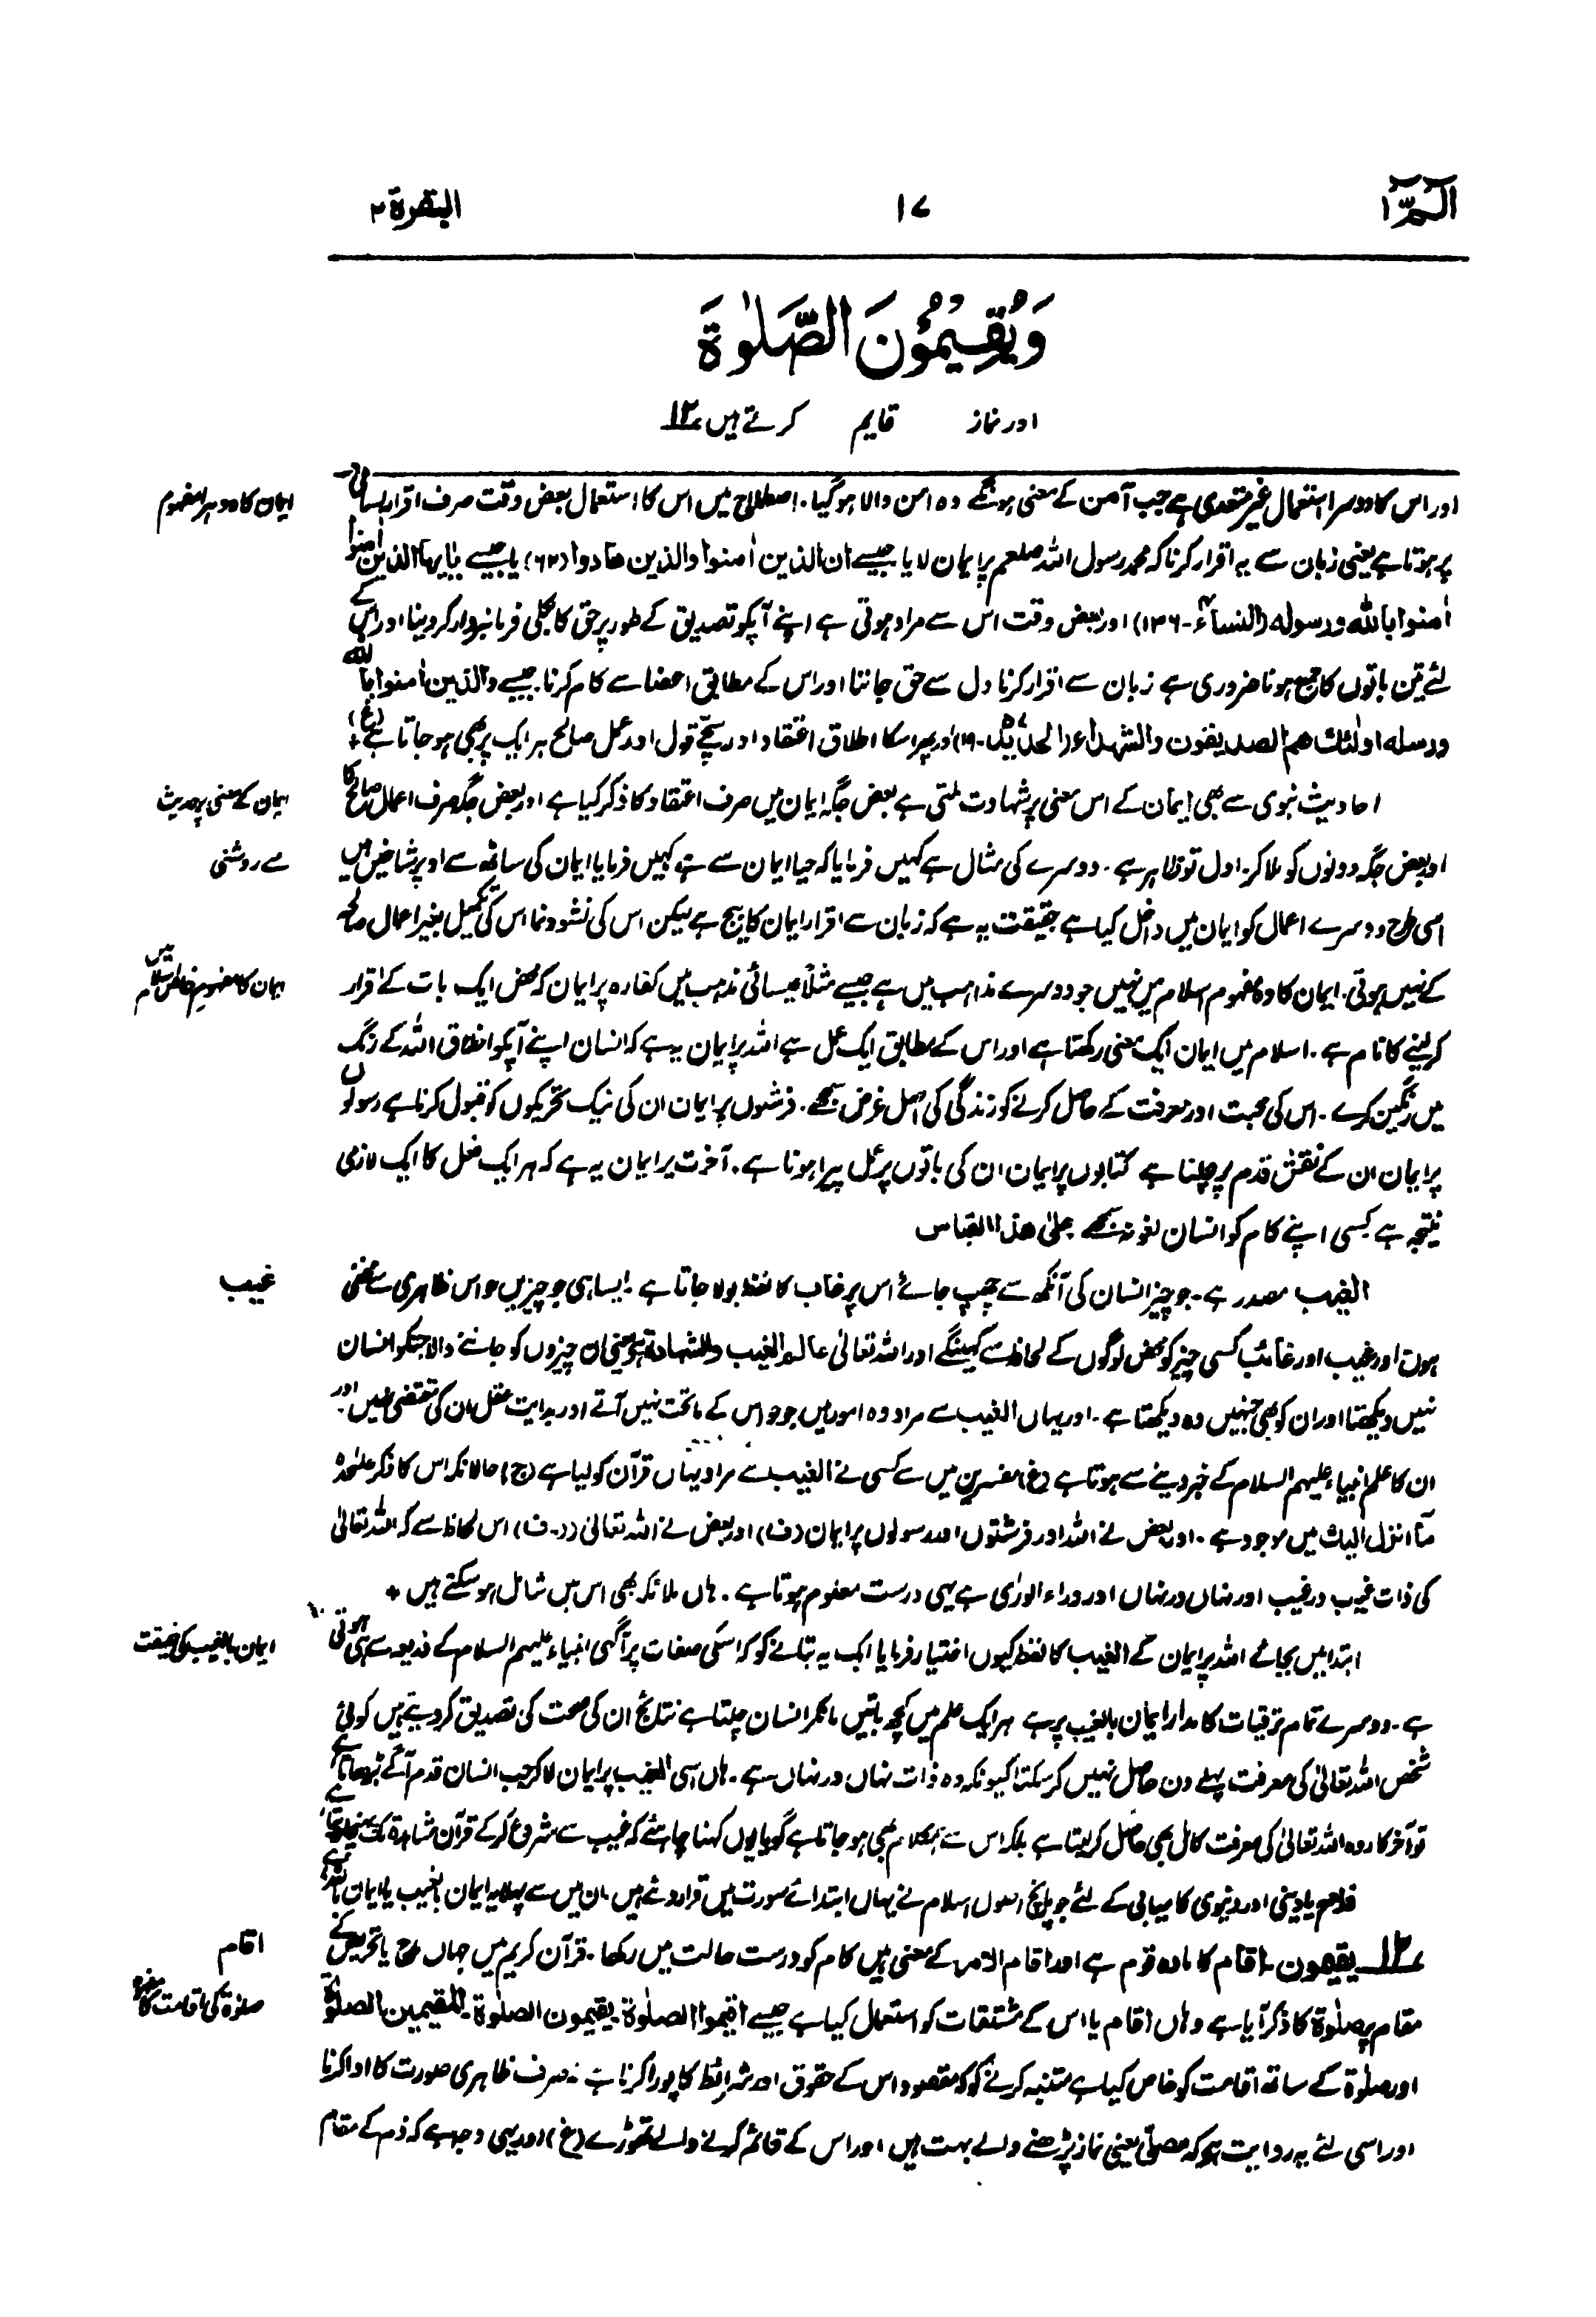 الٓمّٓ ۱
۱۷
البقرة ۲
وَيُقِيْمُوْنَ الصَّلٰوةَ
اور نماز قایم کرتے ہیں ۱۲
اور اس کا دوسرا استعمال غیر متعدی ہے جب آمن کے معنی ہونگے وہ امن والا ہوگیا۔ اصطلاح میں اس کا استعمال بعض وقت صرف اقرار لسانی
ایمان کا دوسرا مفہوم
پر ہوتا ہے یعنی زبان سے یہ اقرار کرنا کہ محمد رسول اللہ صلعم پر ایمان لایا جیسے ان الذین اٰمنوا والذین ھادوا (۶۲) یا جیسے یٰایہا الذین اٰمنوا
اٰمنوا باللہ ورسولہ (النساء۴-۱۳۶) اور بعض وقت اس سے مراد ہوتی ہے اپنے آپکو تصدیق کے طور پر حق کا کلی فرمانبردار کر دینا اور اس کے
لئے تین باتوں کا جمع ہونا ضروری ہے زبان سے اقرار کرنا دل سے حق جاننا اور اس کے مطابق اعضا سے کام کرنا جیسے والذین اٰمنوا باللہ
ورسلہ اولٰئک ھم الصدیقون والشہداء (الحدید۵۷-۱۹) اور پھر اسکا اطلاق اعتقاد اور سچے قول اور عمل صالح ہر ایک پر بھی ہو جاتا ہے (غ) +
احادیث نبوی سے بھی ایمان کے اس معنی پر شہادت ملتی ہے بعض جگہ ایمان میں صرف اعتقاد کا ذکر کیا ہے اور بعض جگہ صرف اعمال صالح کا
ایمان کے معنی پر حدیث
اور بعض جگہ دونوں کو ملا کر۔ اول تو ظاہر ہے۔ دوسرے کی مثال ہے کہیں فرمایا کہ حیا ایمان سے ہے کہیں فرمایا ایمان کی ساٹھ سے اوپر شاخیں ہیں
سے روشنی
اسی طرح دوسرے اعمال کو ایمان میں داخل کیا ہے حقیقت یہ ہے کہ زبان سے اقرار ایمان کا بیج ہے لیکن اس کی نشوونما اس کی تکمیل بغیر اعمال صالحہ
کے نہیں ہوتی۔ ایمان کا وہ مفہوم اسلام میں نہیں جو دوسرے مذاہب میں ہے جیسے مثلاً عیسائی مذہب میں کفارہ پر ایمان کہ محض ایک بات کے اقرار
ایمان کا مفہوم خاص اسلام میں
کر لینے کا نام ہے۔ اسلام میں ایمان ایک معنی رکھتا ہے اور اس کے مطابق ایک عمل ہے اللہ پر ایمان یہ ہے کہ انسان اپنے آپکو اخلاق اللہ کے رنگ
میں رنگین کرے۔ اس کی محبت اور معرفت کے حاصل کرنے کو زندگی کی اصل غرض سمجھے۔ فرشتوں پر ایمان ان کی نیک تحریکوں کو قبول کرنا ہے رسولوں
پر ایمان ان کے نقش قدم پر چلنا ہے کتابوں پر ایمان ان کی باتوں پر عمل پیرا ہونا ہے۔ آخرت پر ایمان یہ ہے کہ ہر ایک فعل کا ایک لازمی
نتیجہ ہے کسی اپنے کام کو انسان لغو نہ سمجھے علیٰ ھذا القیاس
الغیب مصدر ہے۔ جو چیز انسان کی آنکھ سے چھپ جائے اس پر غاب کا لفظ بولا جاتا ہے۔ ایسا ہی جو چیزیں حواس ظاہری سے مخفی
غیب
ہوں اور غیب اور غائب کسی چیز کو محض لوگوں کے لحاظ سے کہینگے اور اللہ تعالیٰ عالم الغیب والشہادۃ ہے یعنی ان چیزوں کو جاننے والا جنکو انسان
نہیں دیکھتا اور ان کو بھی جنہیں وہ دیکھتا ہے۔ اور یہاں الغیب سے مراد وہ امور ہیں جو حواس کے ماتحت نہیں آتے اور بدایت عقل ان کی مقتضی نہیں اور
ان کا علم انبیاء علیہم السلام کے خبر دینے سے ہوتا ہے (غ) مفسرین میں سے کسی نے الغیب سے مراد یہاں قرآن کو لیا ہے (ج) حالانکہ اس کا ذکر علٰحدہ
مآ انزل الیک میں موجود ہے۔ اور بعض نے اللہ اور فرشتوں اور رسولوں پر ایمان (ف) اور بعض نے اللہ تعالیٰ (ر۔ف) اس لحاظ سے کہ اللہ تعالیٰ
کی ذات غیب در غیب اور نہاں در نہاں اور وراء الورٰی ہے یہی درست معلوم ہوتا ہے۔ ہاں ملائکہ بھی اس میں شامل ہو سکتے ہیں +
ابتدا میں بجائے اللہ پر ایمان کے الغیب کا لفظ کیوں اختیار فرمایا ایک یہ بتانے کو کہ اسکی صفات پر آگہی انبیاء علیہم السلام کے ذریعہ سے ہی ہوتی
ایمان بالغیب کی حقیقت
ہے۔ دوسرے تمام ترقیات کا مدار ایمان بالغیب پر ہے ہر ایک علم میں کچھ باتیں مانکر انسان چلتا ہے نتائج ان کی صحت کی تصدیق کر دیتے ہیں کوئی
شخص اللہ تعالیٰ کی معرفت پہلے دن حاصل نہیں کر سکتا کیونکہ وہ ذات نہاں در نہاں ہے۔ ہاں اسی الغیب پر ایمان لا کر جب انسان قدم آگے بڑھاتا ہے
تو آخر کار وہ اللہ تعالیٰ کی معرفت کامل بھی حاصل کر لیتا ہے بلکہ اس سے ہمکلام بھی ہو جاتا ہے گویا یوں کہنا چاہئے کہ غیب سے شروع کر کے قرآن مشاہدۃ تک پہنچا دیتا ہے
فلاح یا دینی اور دنیوی کامیابی کے لئے جو پانچ اصول اسلام نے یہاں ابتدائے سورت میں قرار دئے ہیں۔ ان میں سے پہلا یہ ایمان بالغیب یا ایمان باللہ ہے
۱۲ یقیمون۔ اقام کا مادہ قوم ہے اور اقام الامر کے معنی ہیں کام کو درست حالت میں رکھا۔ قرآن کریم میں جہاں مدح یا تحریض کے
اقام
مقام پر صلٰوۃ کا ذکر آیا ہے وہاں اقام یا اس کے مشتقات کو استعمال کیا ہے جیسے اقیموا الصلٰوۃ۔ یقیمون الصلٰوۃ۔ المقیمین الصلٰوۃ
صلٰوۃ کی اقامت کا مفہوم
اور صلٰوۃ کے ساتھ اقامت کو خاص کیا ہے متنبہ کرنے کو کہ مقصود اس کے حقوق اور شرائط کا پورا کرنا ہے نہ صرف ظاہری صورت کا ادا کرنا
اور اسی لئے یہ روایت ہے کہ مصلی یعنی نماز پڑھنے والے بہت ہیں اور اس کے قائم کرنے والے تھوڑے (غ) اور یہی وجہ ہے کہ ذم کے مقام